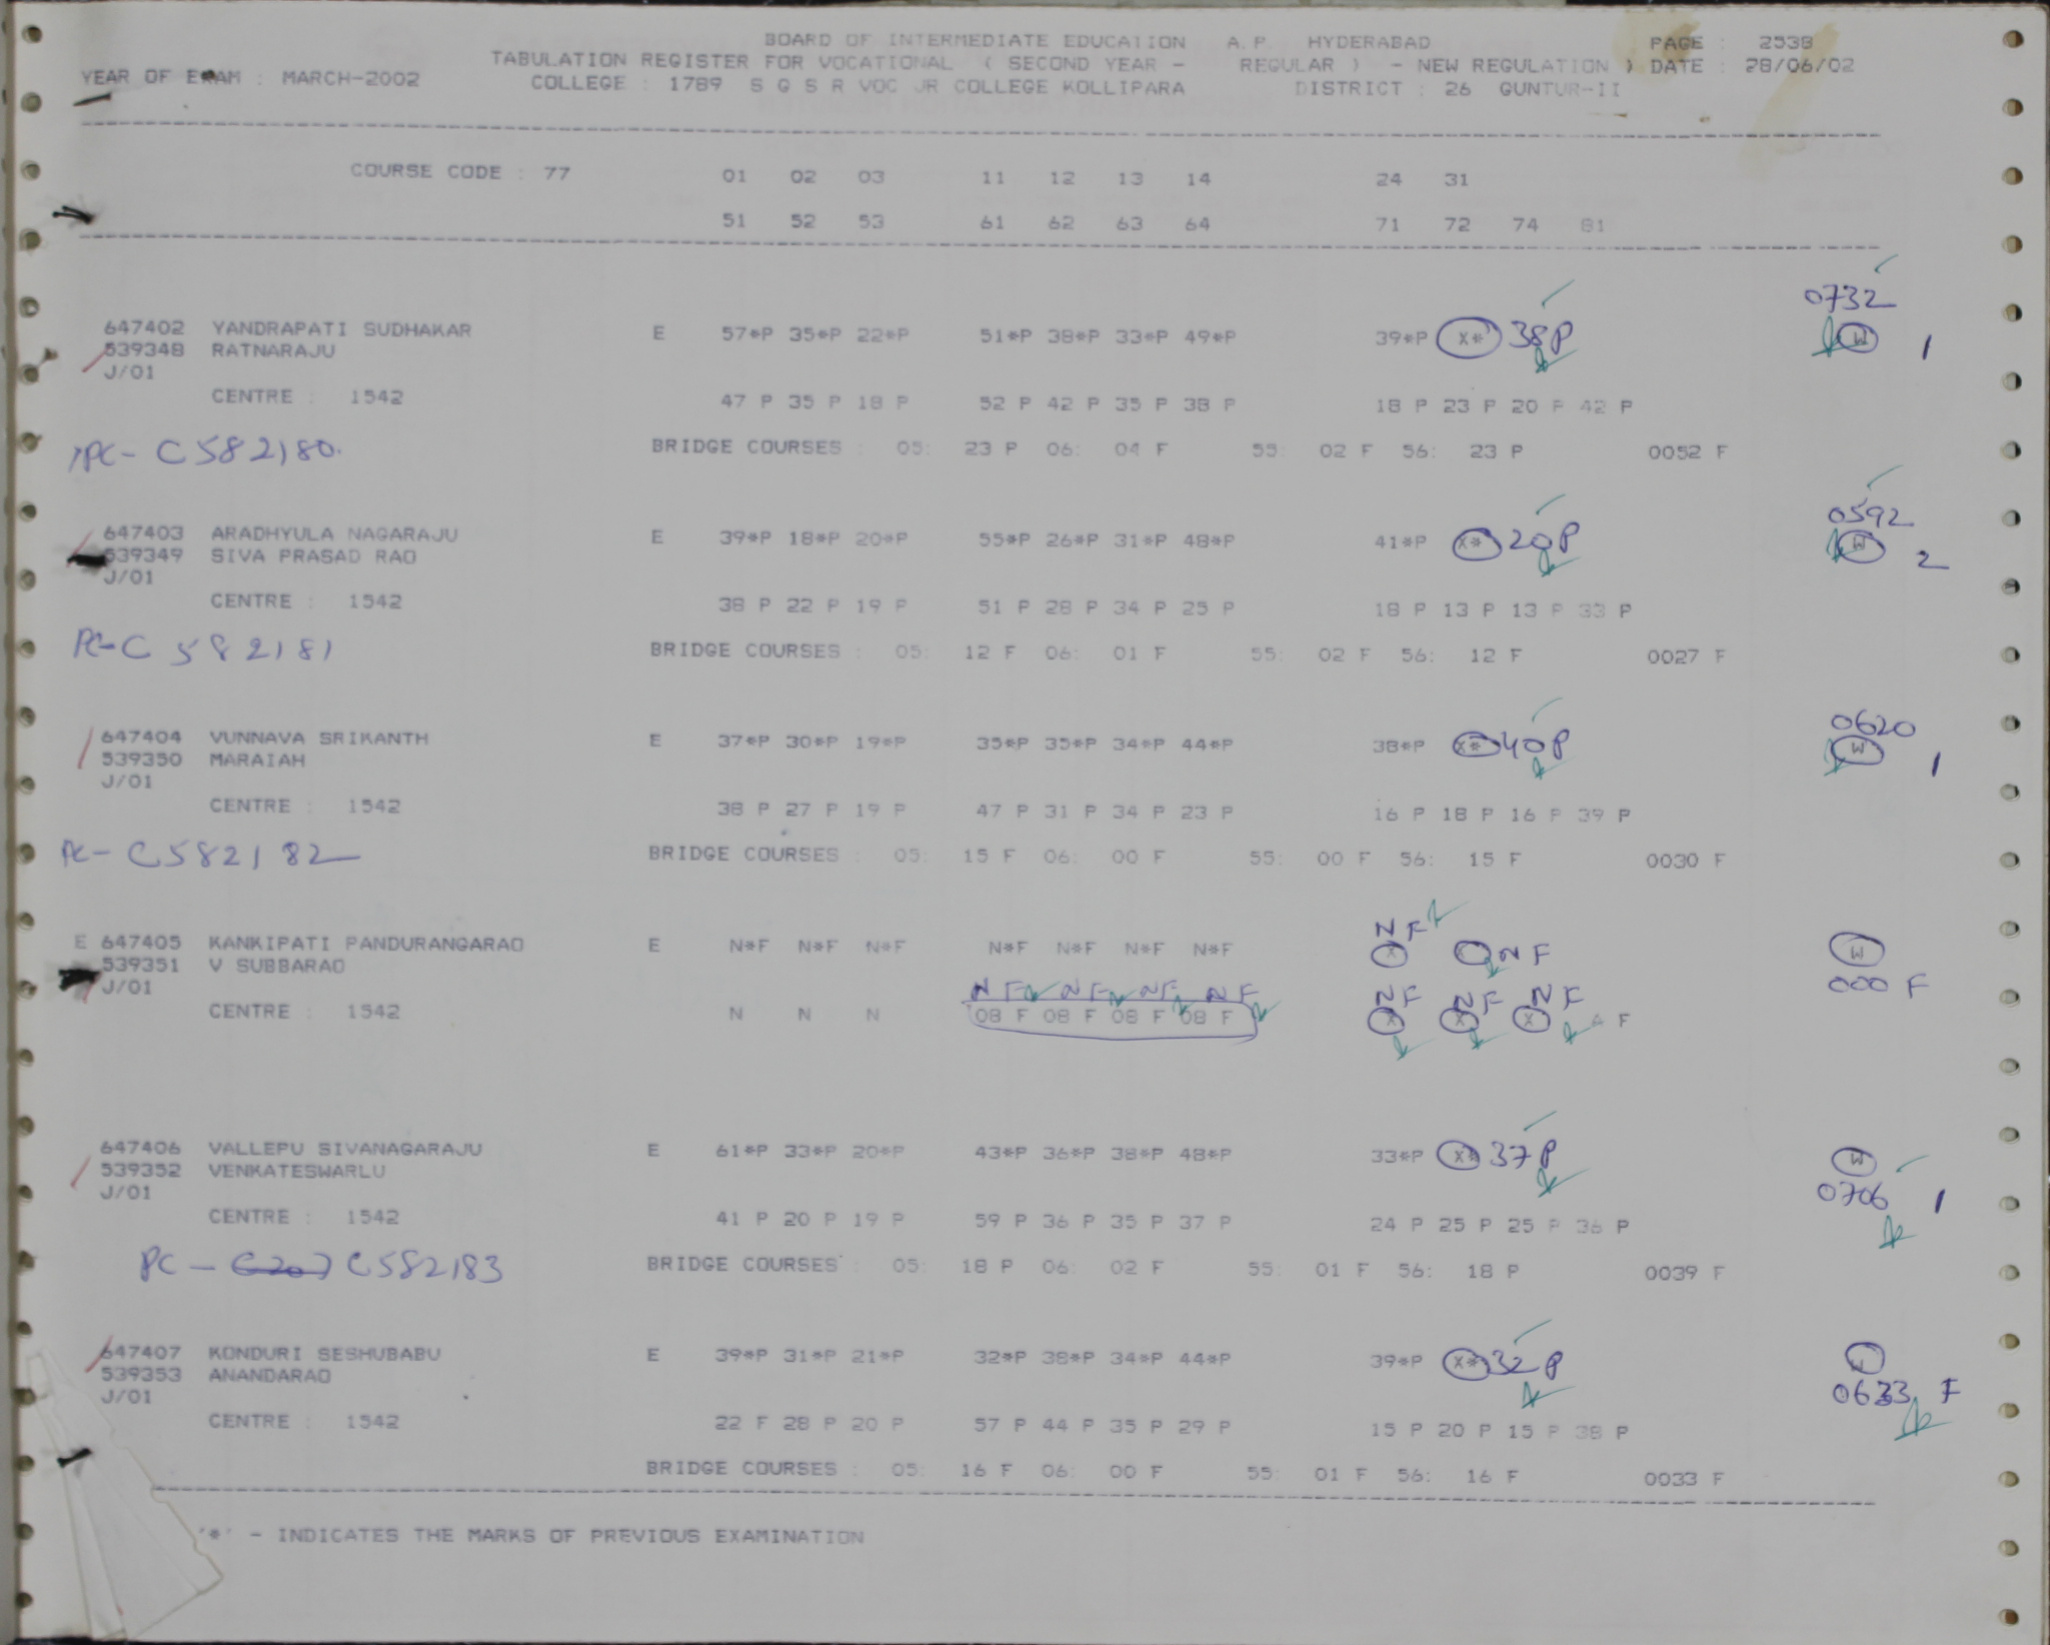 BOARD OF INTERMEDIATE EDUCATION A.P. HYDERABAD PAGE : 2538
TABULATION REGISTER FOR VOCATIONAL ( SECOND YEAR - REGULAR ) - NEW REGULATION ) DATE : 28/06/02
YEAR OF EXAM : MARCH-2002 COLLEGE : 1789 S G S R VOC JR COLLEGE KOLLIPARA DISTRICT : 26 GUNTUR-II
COURSE CODE : 77 01 02 03 11 12 13 14 24 31
51 52 53 61 62 63 64 71 72 74 81
0732
647402 YANDRAPATI SUDHAKAR E 57*P 35*P 22*P 51*P 38*P 33*P 49*P 39*P X* 38P W 1
539348 RATNARAJU
J/01
CENTRE : 1542 47 P 35 P 18 P 52 P 42 P 35 P 38 P 18 P 23 P 20 P 42 P
PC- C582180. BRIDGE COURSES : 05: 23 P 06: 04 F 55: 02 F 56: 23 P 0052 F
0592
647403 ARADHYULA NAGARAJU E 39*P 18*P 20*P 55*P 26*P 31*P 48*P 41*P X* 20P W 2
539349 SIVA PRASAD RAO
J/01
CENTRE : 1542 38 P 22 P 19 P 51 P 28 P 34 P 25 P 18 P 13 P 13 P 33 P
PC-C 582181 BRIDGE COURSES : 05: 12 F 06: 01 F 55: 02 F 56: 12 F 0027 F
0620
647404 VUNNAVA SRIKANTH E 37*P 30*P 19*P 35*P 35*P 34*P 44*P 38*P X* 40P W 1
539350 MARAIAH
J/01
CENTRE : 1542 38 P 27 P 19 P 47 P 31 P 34 P 23 P 16 P 18 P 16 P 39 P
PC- C582182 BRIDGE COURSES : 05: 15 F 06: 00 F 55: 00 F 56: 15 F 0030 F
N F
E 647405 KANKIPATI PANDURANGARAO E N*F N*F N*F N*F N*F N*F N*F X N F W
539351 V SUBBARAO
J/01 N F N F N F N F N F N F N F 000 F
CENTRE : 1542 N N N 08 F 08 F 08 F 08 F X X X A F
647406 VALLEPU SIVANAGARAJU E 61*P 33*P 20*P 43*P 36*P 38*P 48*P 33*P X* 37P W
539352 VENKATESWARLU
J/01 0706 1
CENTRE : 1542 41 P 20 P 19 P 59 P 36 P 35 P 37 P 24 P 25 P 25 P 36 P
PC - C582183 BRIDGE COURSES : 05: 18 P 06: 02 F 55: 01 F 56: 18 P 0039 F
647407 KONDURI SESHUBABU E 39*P 31*P 21*P 32*P 38*P 34*P 44*P 39*P X* 32P W
539353 ANANDARAO
J/01 0633 F
CENTRE : 1542 22 F 28 P 20 P 57 P 44 P 35 P 29 P 15 P 20 P 15 P 38 P
BRIDGE COURSES : 05: 16 F 06: 00 F 55: 01 F 56: 16 F 0033 F
'*' - INDICATES THE MARKS OF PREVIOUS EXAMINATION